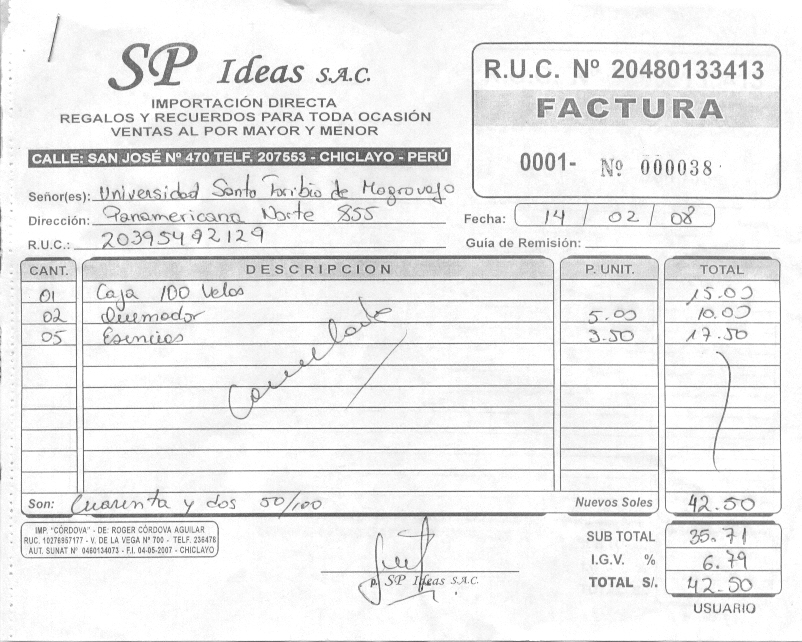 SP Ideas S.A.C.
IMPORTACIÓN DIRECTA
REGALOS Y RECUERDOS PARA TODA OCASIÓN
VENTAS AL POR MAYOR Y MENOR
CALLE: SAN JOSÉ Nº 470 TELF. 207553 - CHICLAYO - PERÚ
R.U.C. Nº 20480133413
FACTURA
0001- Nº 000038
Señor(es): Universidad Santo Toribio de Mogrovejo
Dirección: Panamericana Norte 855
R.U.C.: 20395492129
Fecha: 14 / 02 / 08
Guía de Remisión:
CANT. DESCRIPCION P. UNIT. TOTAL
01 Caja 100 Velas 15.00
02 Quemador 5.00 10.00
05 Esencias 3.50 17.50
Cancelado
Son: Cuarenta y dos 50/100 Nuevos Soles 42.50
IMP. "CÓRDOVA" - DE: ROGER CÓRDOVA AGUILAR
RUC. 10276957177 - V. DE LA VEGA Nº 700 - TELF. 236476
AUT. SUNAT Nº 0460134073 - F.I. 04-05-2007 - CHICLAYO
p. SP Ideas S.A.C.
SUB TOTAL 35.71
I.G.V. % 6.79
TOTAL S/. 42.50
USUARIO